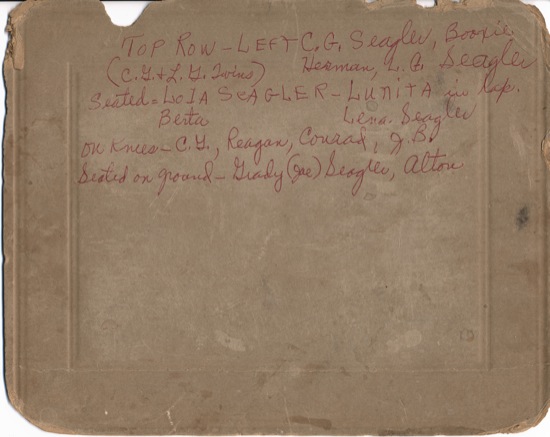 TOP ROW - LEFT C.G. Seagler, Booxie
(C.G. & L.G. Twins) Herman, L.G. Seagler
Seated = LOIA SEAGLER - LUNITA in lap.
Berta Lena Seagler
on knees - C.Y., Reagan, Conrad, J.B.
Seated on ground - Grady (Joe) Seagler, Alton